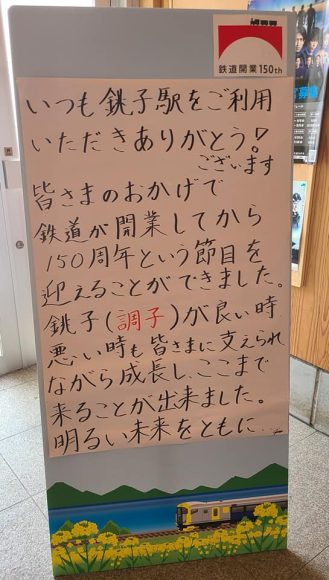 鉄道開業150th
いつも銚子駅をご利用
いただきありがとう!
ございます
皆さまのおかげで
鉄道が開業してから
150周年という節目を
迎えることができました。
銚子(調子)が良い時
悪い時も皆さまに支えられ
ながら成長し、ここまで
来ることが出来ました。
明るい未来をともに…